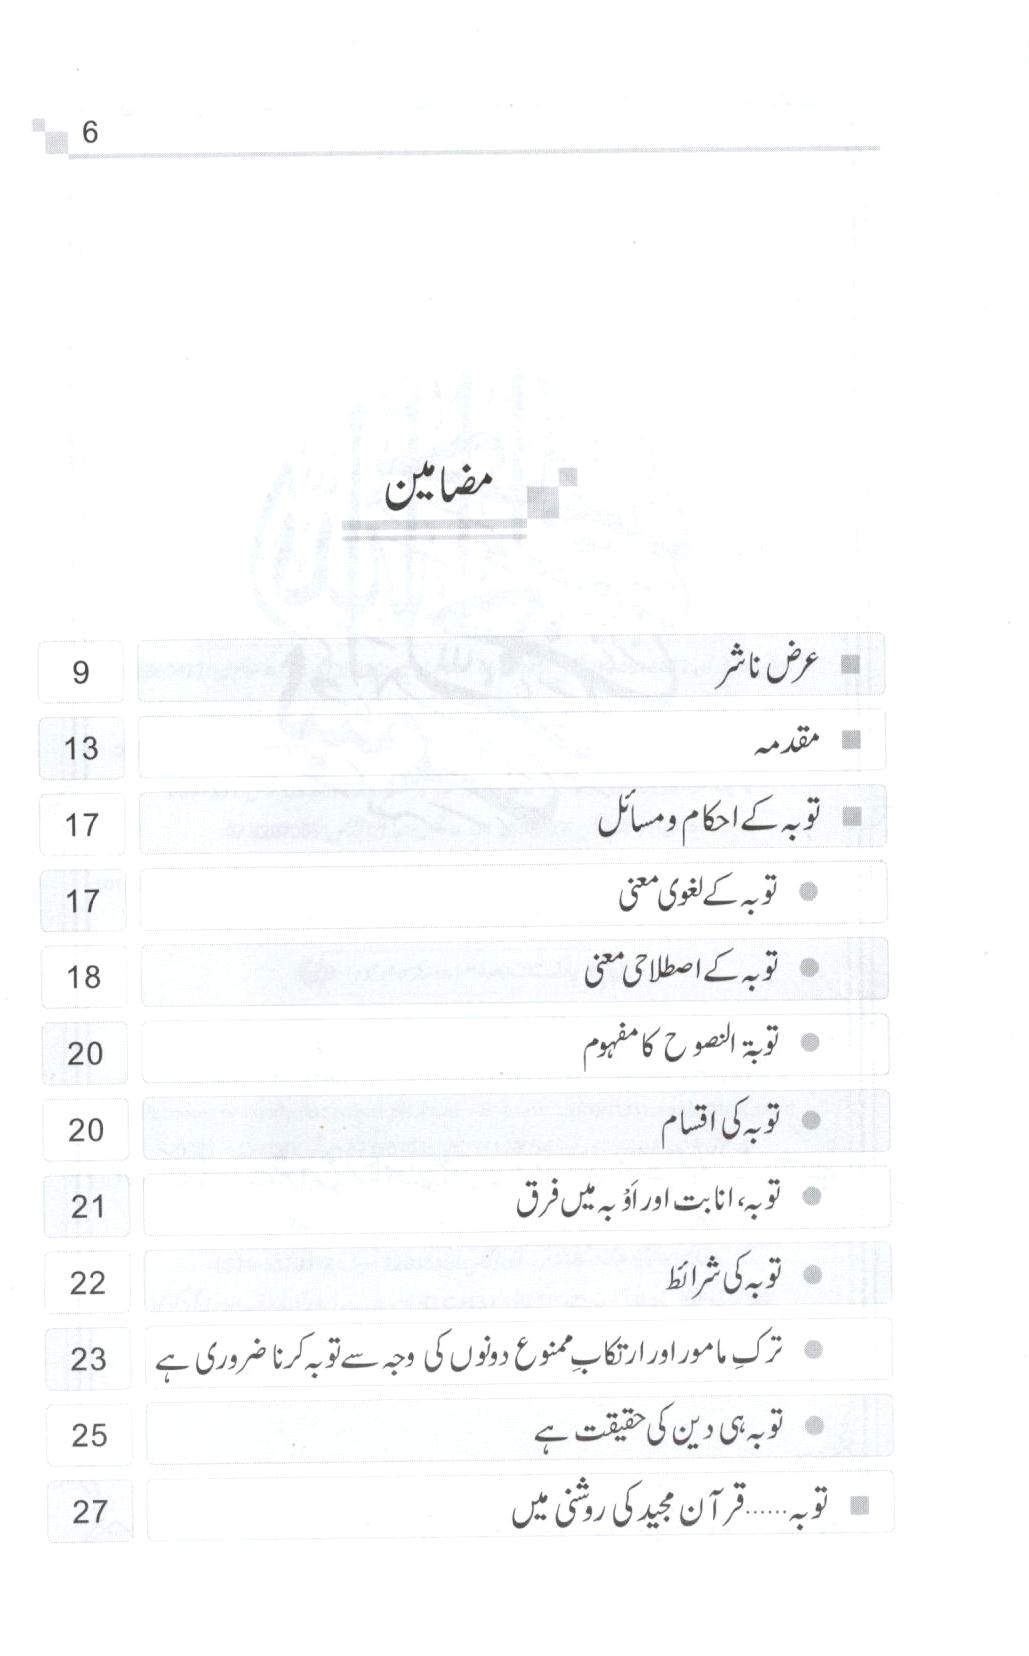 6
مضامین
عرض ناشر 9
مقدمہ 13
توبہ کے احکام و مسائل 17
توبہ کے لغوی معنی 17
توبہ کے اصطلاحی معنی 18
توبۃ النصوح کا مفہوم 20
توبہ کی اقسام 20
توبہ، انابت اور اَوْبہ میں فرق 21
توبہ کی شرائط 22
ترکِ مامور اور ارتکابِ ممنوع دونوں کی وجہ سے توبہ کرنا ضروری ہے 23
توبہ ہی دین کی حقیقت ہے 25
توبہ......قرآن مجید کی روشنی میں 27